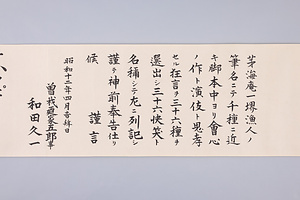 茅海庵一堺漁人ノ
筆名ニテ千種ニ近
キ脚本中ヨリ會心
ノ作ト演伎ト思孝
セル狂言ヲ三十六種ヲ
選出シ三十六快笑ト
名稱シテ左ニ列記シ
謹テ神前奉告仕リ
候 謹言
昭和十二年四月吉祥日
曽我廼家五郎事
和田久一